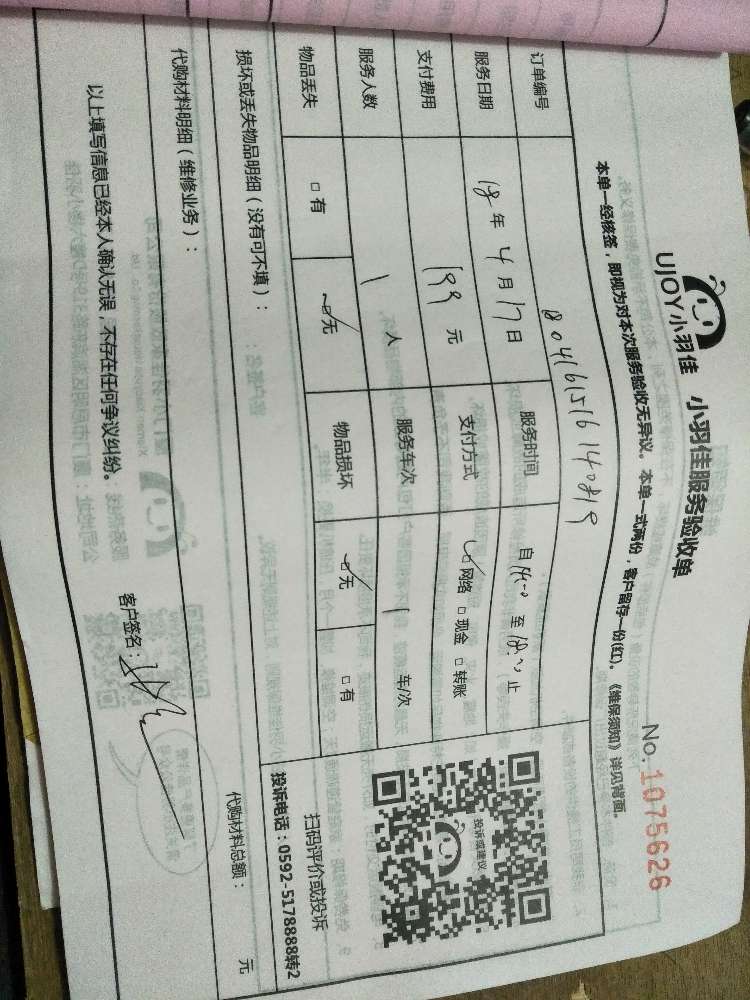 UJOY小羽佳 小羽佳服务验收单
No. 1075626
本单一经核签，即视为对本次服务验收无异议。本单一式两份，客户留存一份(红)。《维保须知》详见背面。
订单编号
服务日期 18年4月17日 服务时间
支付费用 199元 支付方式 网络 现金 转账
服务人数 1人 服务车次 1车/次
物品丢失 有 无 物品损坏 无 有
投说或建议
扫码评价或投诉
投诉电话：0592-5178888转2
损坏或丢失物品明细（没有可不填）：
代购材料明细（维修业务）：
代购材料总额： 元
以上填写信息已经本人确认无误，不存在任何争议纠纷。
客户签名：